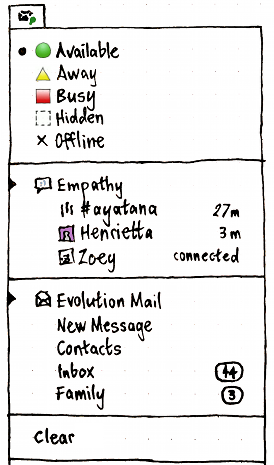 Available
Away
Busy
Hidden
Offline
Empathy
#ayatana 27m
Henrietta 3m
Zoey connected
Evolution Mail
New Message
Contacts
Inbox 14
Family 3
Clear